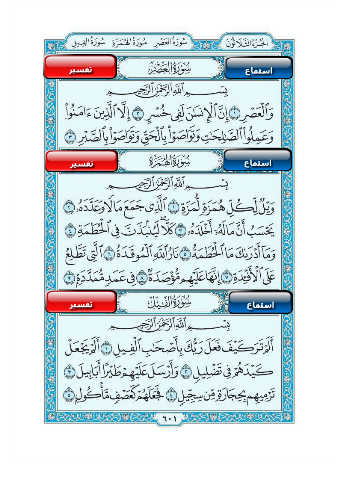 الجزء الثلاثون سورة العصر سورة الهمزة سورة الفيل
استماع سورة العصر تفسير
بسم الله الرحمن الرحيم
وَٱلْعَصْرِ ١ إِنَّ ٱلْإِنسَٰنَ لَفِى خُسْرٍ ٢ إِلَّا ٱلَّذِينَ ءَامَنُوا۟
وَعَمِلُوا۟ ٱلصَّٰلِحَٰتِ وَتَوَاصَوْا۟ بِٱلْحَقِّ وَتَوَاصَوْا۟ بِٱلصَّبْرِ ٣
استماع سورة الهمزة تفسير
بسم الله الرحمن الرحيم
وَيْلٌ لِّكُلِّ هُمَزَةٍ لُّمَزَةٍ ١ ٱلَّذِى جَمَعَ مَالًا وَعَدَّدَهُۥ ٢
يَحْسَبُ أَنَّ مَالَهُۥٓ أَخْلَدَهُۥ ٣ كَلَّا لَيُنۢبَذَنَّ فِى ٱلْحُطَمَةِ ٤
وَمَآ أَدْرَىٰكَ مَا ٱلْحُطَمَةُ ٥ نَارُ ٱللَّهِ ٱلْمُوقَدَةُ ٦ ٱلَّتِى تَطَّلِعُ
عَلَى ٱلْأَفْـِٔدَةِ ٧ إِنَّهَا عَلَيْهِم مُّؤْصَدَةٌ ٨ فِى عَمَدٍ مُّمَدَّدَةٍۭ ٩
استماع سورة الفيل تفسير
بسم الله الرحمن الرحيم
أَلَمْ تَرَ كَيْفَ فَعَلَ رَبُّكَ بِأَصْحَٰبِ ٱلْفِيلِ ١ أَلَمْ يَجْعَلْ
كَيْدَهُمْ فِى تَضْلِيلٍ ٢ وَأَرْسَلَ عَلَيْهِمْ طَيْرًا أَبَابِيلَ ٣
تَرْمِيهِم بِحِجَارَةٍ مِّن سِجِّيلٍ ٤ فَجَعَلَهُمْ كَعَصْفٍ مَّأْكُولٍۭ ٥
٦٠١